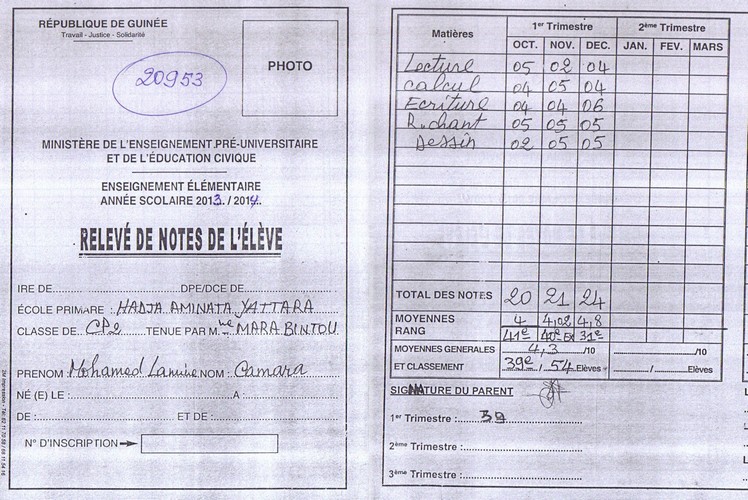 RÉPUBLIQUE DE GUINÉE
Travail - Justice - Solidarité
20953
PHOTO
MINISTÈRE DE L'ENSEIGNEMENT PRÉ-UNIVERSITAIRE
ET DE L'ÉDUCATION CIVIQUE
ENSEIGNEMENT ÉLÉMENTAIRE
ANNÉE SCOLAIRE 2013. / 2014.
RELEVÉ DE NOTES DE L'ÉLÈVE
IRE DE DPE/DCE DE
ÉCOLE PRIMAIRE : HADJA AMINATA YATTARA
CLASSE DE CP2 TENUE PAR Mme MARA BINTOU
PRENOM : Mohamed Lamine NOM : Camara
NÉ (E) LE : A :
DE : ET DE :
N° D'INSCRIPTION
Matières 1er Trimestre 2ème Trimestre
OCT. NOV. DEC. JAN. FEV. MARS
Lecture 05 02 04
Calcul 04 05 04
Ecriture 04 04 06
R. chant 05 05 05
Dessin 02 05 05
TOTAL DES NOTES 20 21 24
MOYENNES 4 4,02 4,8
RANG 41e 40e ex 31e
MOYENNES GENERALES 4,3 /10 /10
ET CLASSEMENT 39e / 54 Elèves / Elèves
SIGNATURE DU PARENT
1er Trimestre : 39
2ème Trimestre :
3ème Trimestre :